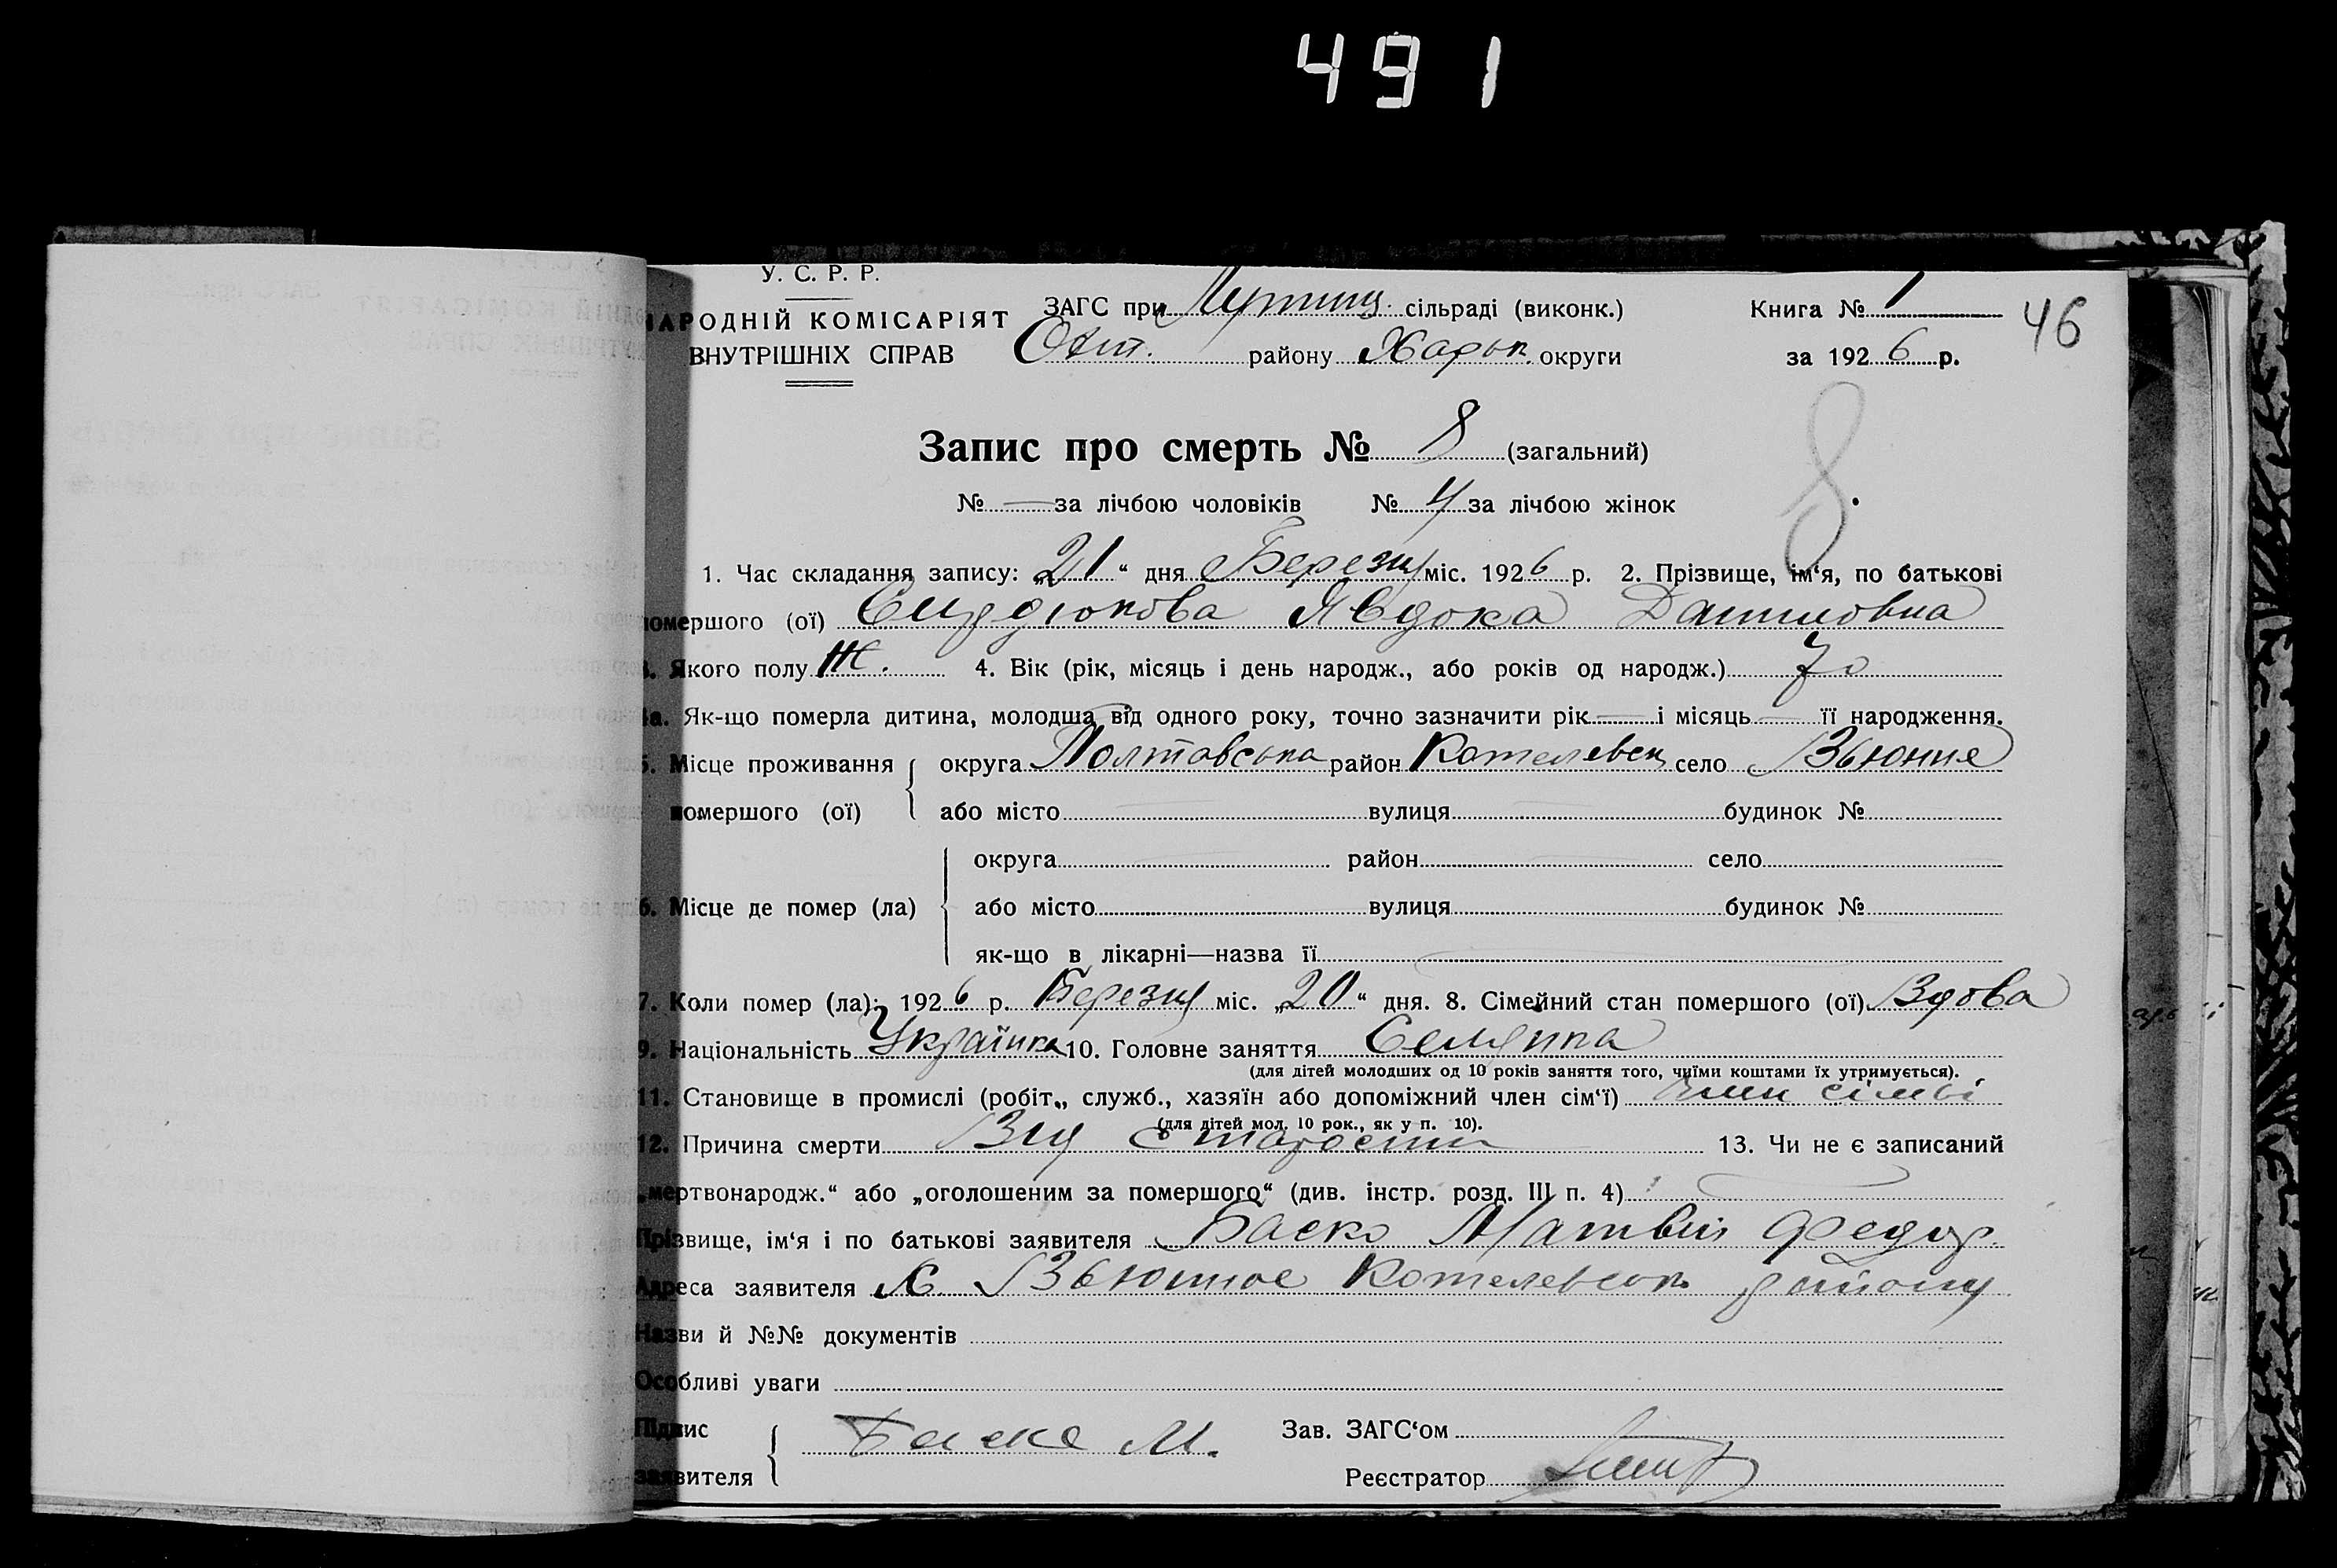 491
У. С. Р. Р.
НАРОДНІЙ КОМІСАРІЯТ
ВНУТРІШНІХ СПРАВ
ЗАГС при сільраді (виконк.)
Охт. району Харьк. округи
Книга № 1
за 1926 р.
46
Запис про смерть № 8 (загальний)
8
№ — за лічбою чоловіків № 4 за лічбою жінок
1. Час складання запису: „21“ дня Березня міс. 1926 р. 2. Прізвище, ім‘я, по батькові
помершого (ої) Сердюкова Явдока Даниловна
3. Якого полу Ж. 4. Вік (рік, місяць і день народж., або років од народж.) 70
4а. Як-що померла дитина, молодша від одного року, точно зазначити рік — і місяць — її народження.
5. Місце проживання округа Полтавська район Котелевськ село Вьюнне
помершого (ої) або місто вулиця будинок №
округа район село
6. Місце де помер (ла) або місто вулиця будинок №
як-що в лікарні—назва її
7. Коли помер (ла): 1926 р. Березня міс. „20“ дня. 8. Сімейний стан помершого (ої) Вдова
9. Національність Українка 10. Головне заняття Селянка
(для дітей молодших од 10 років заняття того, чиїми коштами їх утримується).
11. Становище в промислі (робіт., служб., хазяїн або допоміжний член сім‘ї) член сімьі
(для дітей мол. 10 рок., як у п. 10).
12. Причина смерти Від старости 13. Чи не є записаний
„мертвонародж.“ або „оголошеним за помершого“ (див. інстр. розд. III п. 4)
Прізвище, ім‘я і по батькові заявителя Баско Матвій Федор.
Адреса заявителя Х. Вьюнное Котелевськ району
Назви й №№ документів
Особливі уваги
Підпис
заявителя Баско М.
Зав. ЗАГС‘ом
Реєстратор